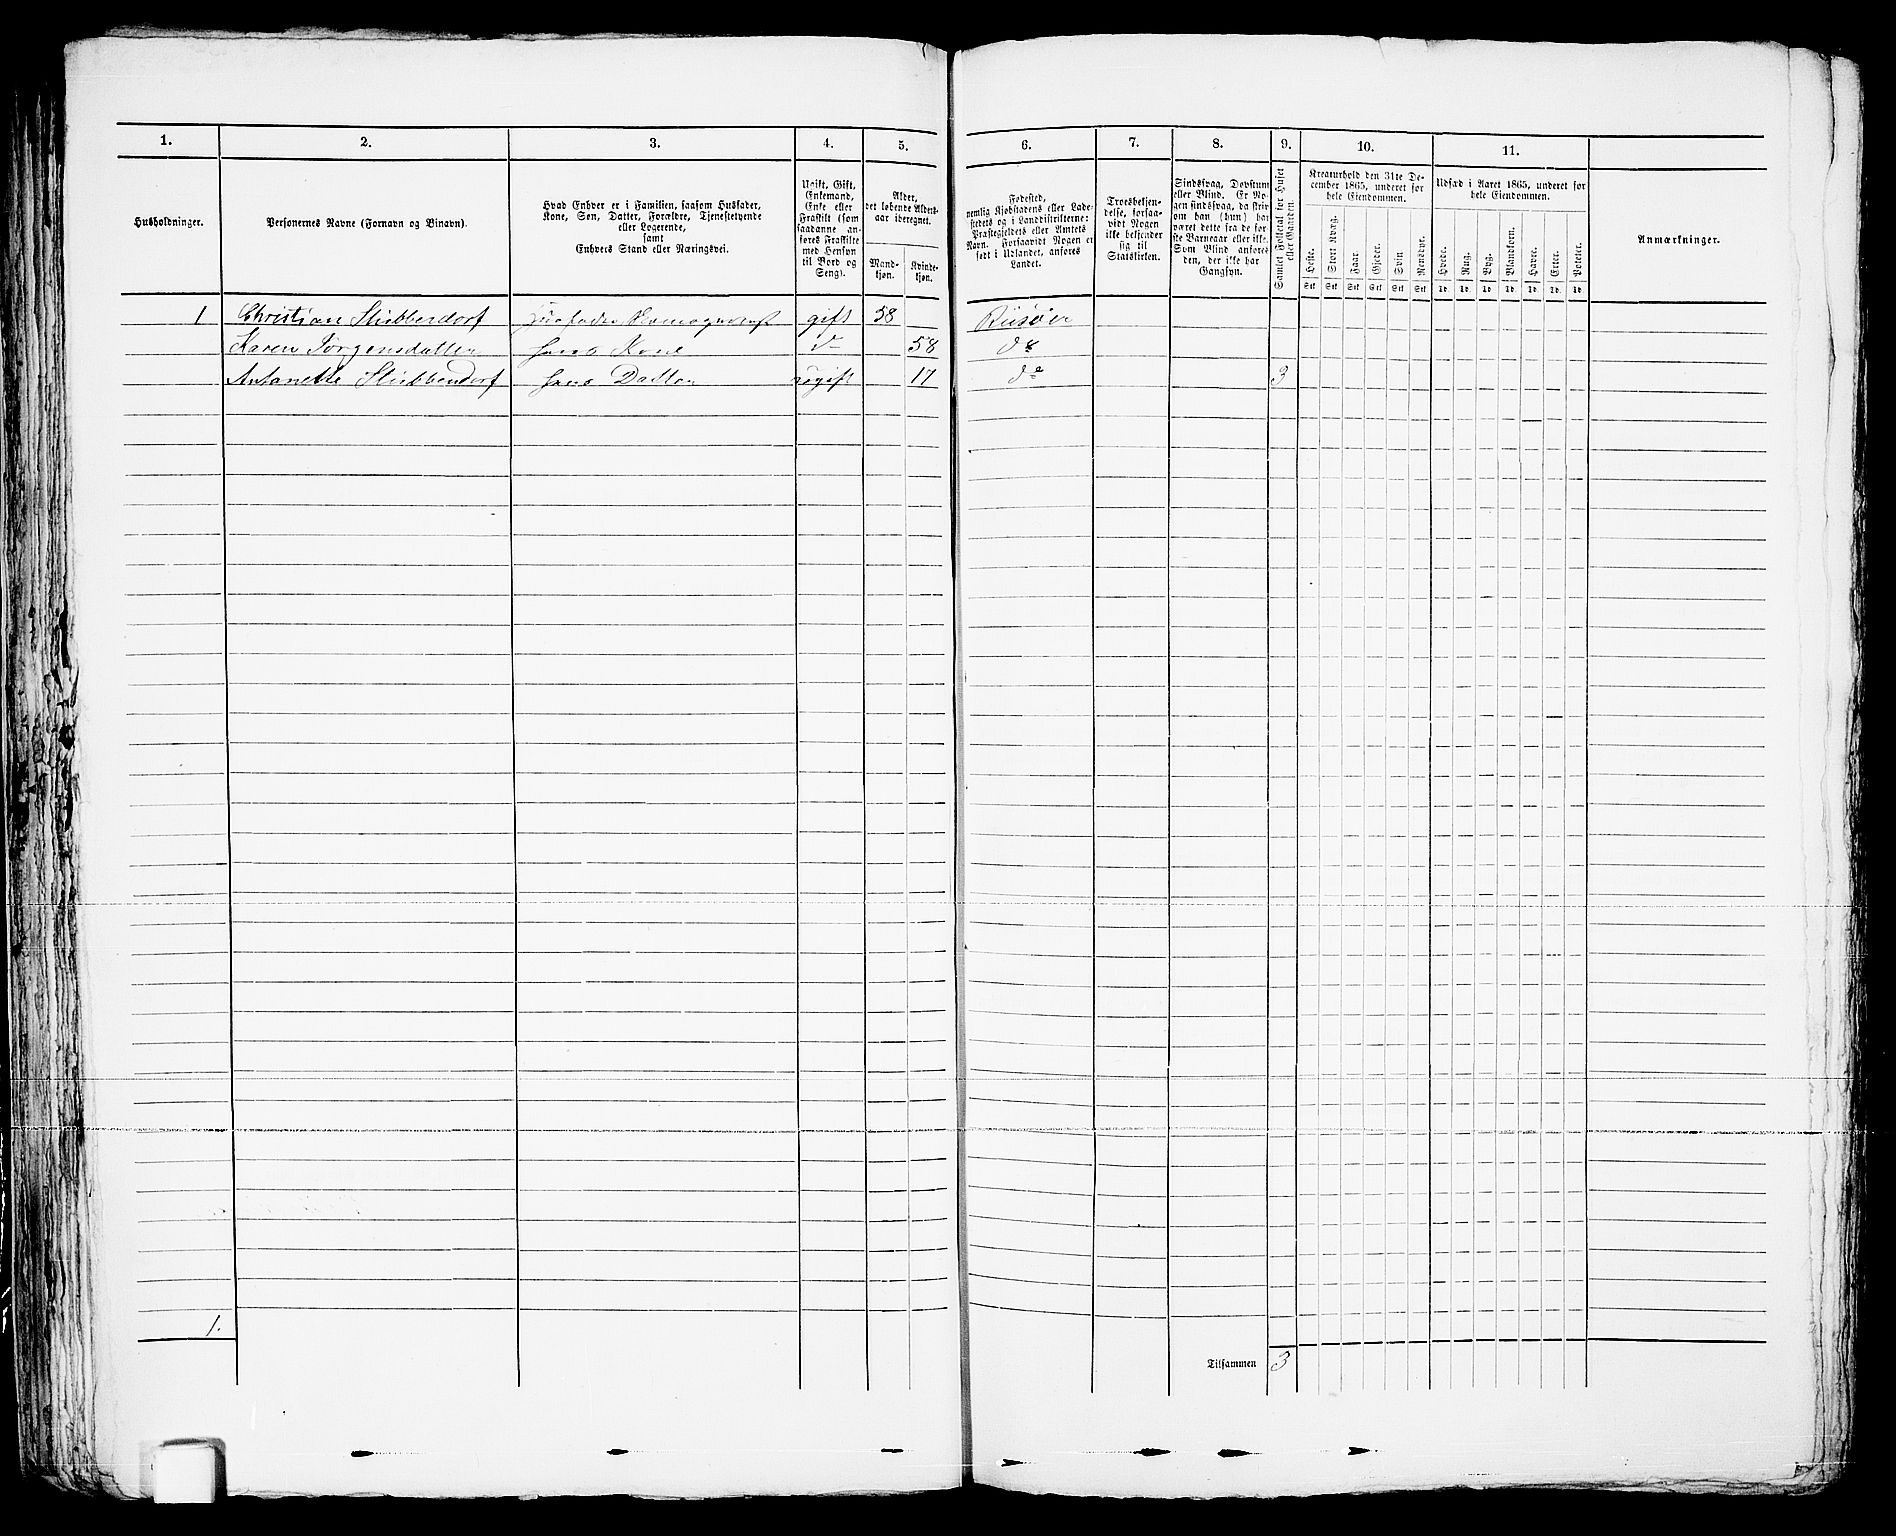 1. 2. 3. 4. 5. 6. 7. 8. 9. 10. 11.
Husholdninger.
Personernes Navne (Fornavn og Binavn).
Hvad Enhver er i Familien, saasom Husfader,
Kone, Søn, Datter, Forældre, Tjenestetyende
eller Logerende,
samt
Enhvers Stand eller Næringsvei.
Ugift, Gift,
Enkemand,
Enke eller
Fraskilt (som
saadanne an-
føres Fraskilte
med Hensyn
til Bord og
Seng).
Alder,
det løbende Alders-
aar iberegnet.
Mand-
kjøn.
Kvinde-
kjøn.
Fødested,
nemlig Kjøbstadens eller Lade-
stedets og i Landdistrikterne:
Præstegjeldets eller Amtets
Navn. Forsaavidt Nogen er
født i Udlandet, anføres
Landet.
Troesbekjen-
delse, forsaa-
vidt Nogen
ikke bekjender
sig til
Statskirken.
Sindssvag, Døvstum
eller Blind. Er No-
gen sindssvag, da skriv
om han (hun) har
været dette fra de før-
ste Barneaar eller ikke.
Som Blind anføres
den, der ikke har
Gangsyn.
Samlet Folketal for Huset
eller Gaarden.
Kreaturhold den 31te De-
cember 1865, underet for
hele Eiendommen.
Heste. Stort Kvæg. Faar. Gjeder. Svin Rensdyr.
Stk Stk Stk Stk Stk Stk
Udsæd i Aaret 1865, underet for
hele Eiendommen.
Hvede. Rug. Byg. Blandkorn. Havre. Erter. Poteter.
Td. Td. Td. Td. Td. Td. Td.
Anmærkninger.
1 Christian Stübbendorf gift 58 Riisøer
Karen Jørgensdatter hans Kone do 58 do
Antonette Stübbendorf hans Datter ugift 17 do 3
1.
Tilsammen 3